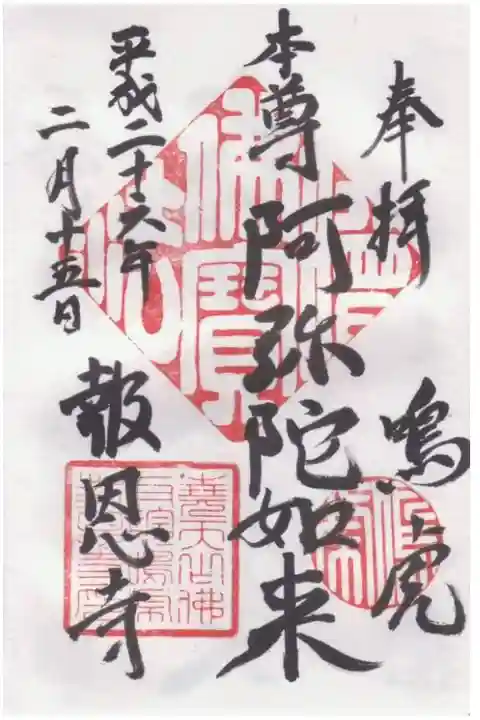 奉拝
鳴虎
本尊 阿弥陀如来
平成二十六年
二月十五日
報恩寺